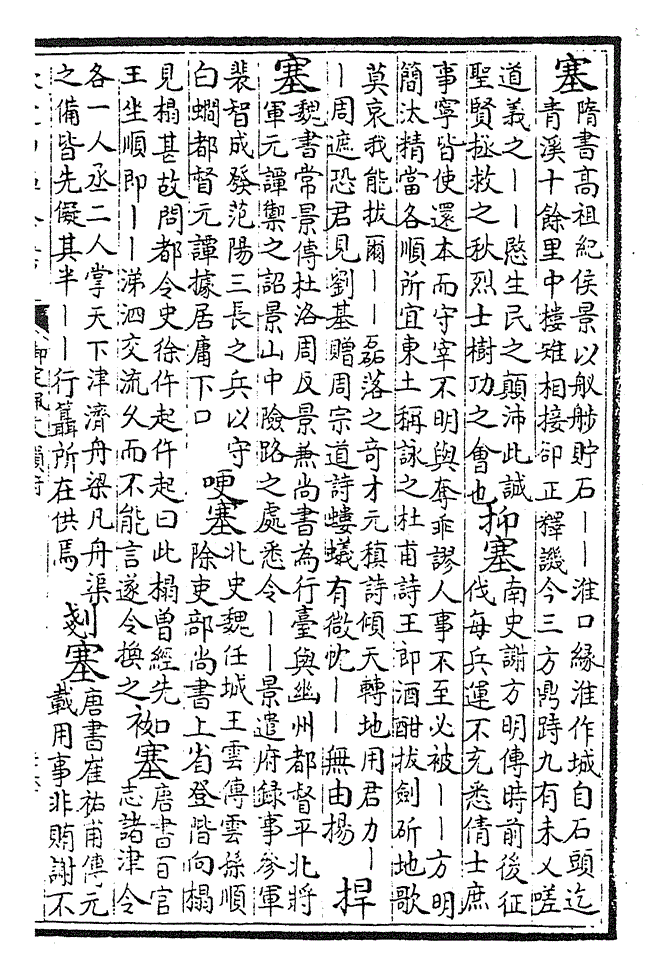 塞
隋書高祖紀侯景以舣舺貯石——淮口緣淮作城自石頭迄
青溪十餘里中樓雉相接郤正釋譏今三方鼎跱九有未乂嗟
道義之——愍生民之顛沛此誠
聖賢拯救之秋烈士樹功之會也
抑塞
南史謝方明傳時前後征
伐每兵運不充悉倩士庶
事寧皆使還本而守宰不明與奪乖謬人事不至必被——方明
簡汰精當各順所宜東土稱詠之杜甫詩王郎酒酣拔劍斫地歌
莫哀我能拔爾——磊落之奇才元稹詩傾天轉地用君力—
—周遮恐君見劉基贈周宗道詩螻蟻有微忱——無由揚
捍
塞
魏書常景傳杜洛周反景兼尚書為行臺與幽州都督平北將
軍元譚禦之詔景山中險路之處悉令——景遣府錄事參軍
裴智成發范陽三長之兵以守
白㵎都督元譚據居庸下口
哽塞
北史魏任城王雲傳雲孫順
除吏部尚書上省登階向榻
見榻甚故問都令史徐仵起仵起曰此榻曾經先
王坐順即——涕泗交流久而不能言遂令換之
袽塞
唐書百官
志諸津令
各一人丞二人掌天下津濟舟梁凡舟渠
之備皆先儗其半——行所在供焉
剗塞
唐書崔祐甫傳元
載用事非賄謝不